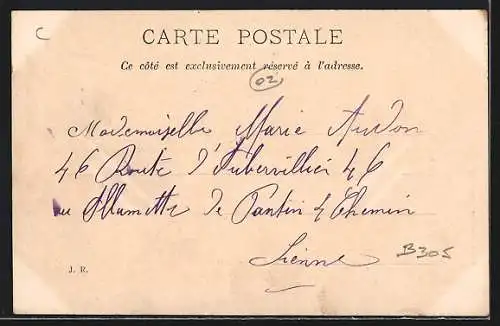 C
CARTE POSTALE
Ce côté est exclusivement réservé à l'adresse.
02
Mademoiselle Marie Audon
46 Route d'Aubervillier 46
de Pantin 4 Chemin
B305
J. R.